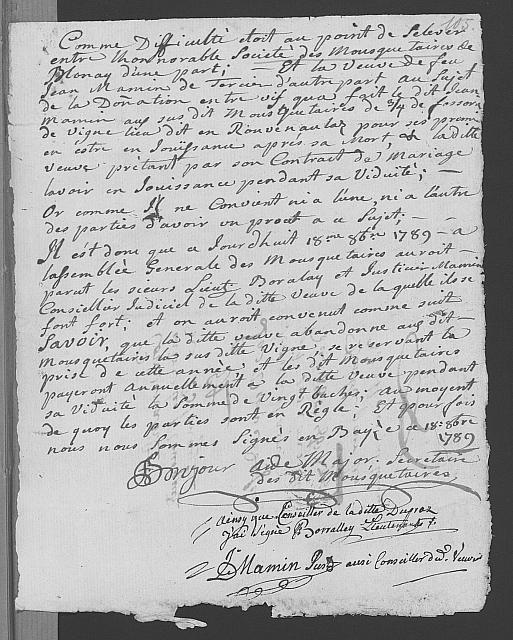 105
Comme Difficulté étoit au point de Selever
entre lhonnorable Société des Mousquetaires de
Blonay d'une part; Et la Veuve de feu
Jean Mamin de Tercier d'autre part au Sujet
de la Donation entre vifs qua fait le dit Jean
Mamin aus sus dit Mousquetaires de 3/4 de fossorier
de Vigne lieu dit en pour ses promis
en estre en Jouïssance après sa Mort, & ladite
veuve prétant par son Contract de Mariage
lavoir en Jouïssance pendant sa Viduité;
Or comme Il ne Convient ni a l'une, ni a l'autre
des parties d'avoir un procet a ce Sujet;
Il est donc que ce Jourdhuit 18me 8bre 1789 a
lassemblée Generale des Mousquetaires auroit
parut les sieurs Lieut Boralay et Justicier Mamin
Conseillier Judiciel de la ditte Veuve de la quelle ils se
font fort; et on auroit convenut comme suit
Savoir, que la ditte veuve abandonne aus dit
Mousquetaires la sus ditte Vigne, se reservant la
prise de cette année, et les dit Mousquetaires
payeront annuellement à la ditte Veuve pendant
sa Viduité la Somme de Vingt baches; au moyent
de quoy les parties sont en Règle; Et pour fois
nous nous Sommes Signés en Bayë ce 18e 8bre
1789
Bonjour aide Major, Secretaire
des dit Mousquetaires
ainsy que Conseiller de la ditte
J'ai Signé Borralley Lieutenant
J. Mamin Just ausi Conseiller de d. Veuve